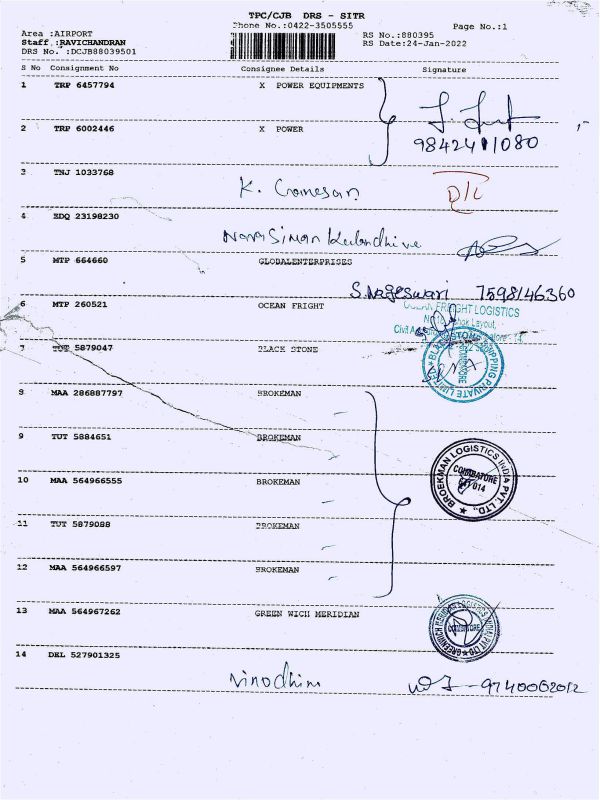 TPC/CJB DRS - SITR
Phone No.:0422-3505555
Page No.:1
Area :AIRPORT
RS No.:880395
Staff :RAVICHANDRAN
RS Date:24-Jan-2022
DRS No. :DCJB88039501
S No Consignment No Consignee Details Signature
1 TRP 6457794 X POWER EQUIPMENTS
2 TRP 6002446 X POWER
9842411080
3 TNJ 1033768
K. Ganesan D/C
4 EDQ 23198230
5 MTP 664660 GLOBALENTERPRISES
S.Nageswari 7598146360
6 MTP 260521 OCEAN FRIGHT
OCEAN FREIGHT LOGISTICS
Layout,
Civil
7 TUT 5879047 BLACK STONE
BLACKSTONE SHIPPING PRIVATE LIMITED
COIMBATORE
8 MAA 286887797 BROKEMAN
9 TUT 5884651 BROKEMAN
BROEKMAN LOGISTICS INDIA PVT. LTD.,
COIMBATORE
641 014
10 MAA 564966555 BROKEMAN
11 TUT 5879088 BROKEMAN
12 MAA 564966597 BROKEMAN
13 MAA 564967262 GREEN WICH MERIDIAN
GREENWICH MERIDIAN LOGISTICS INDIA PVT LTD
COIMBATORE
14 DEL 527901325
Vinodhini 9740002012